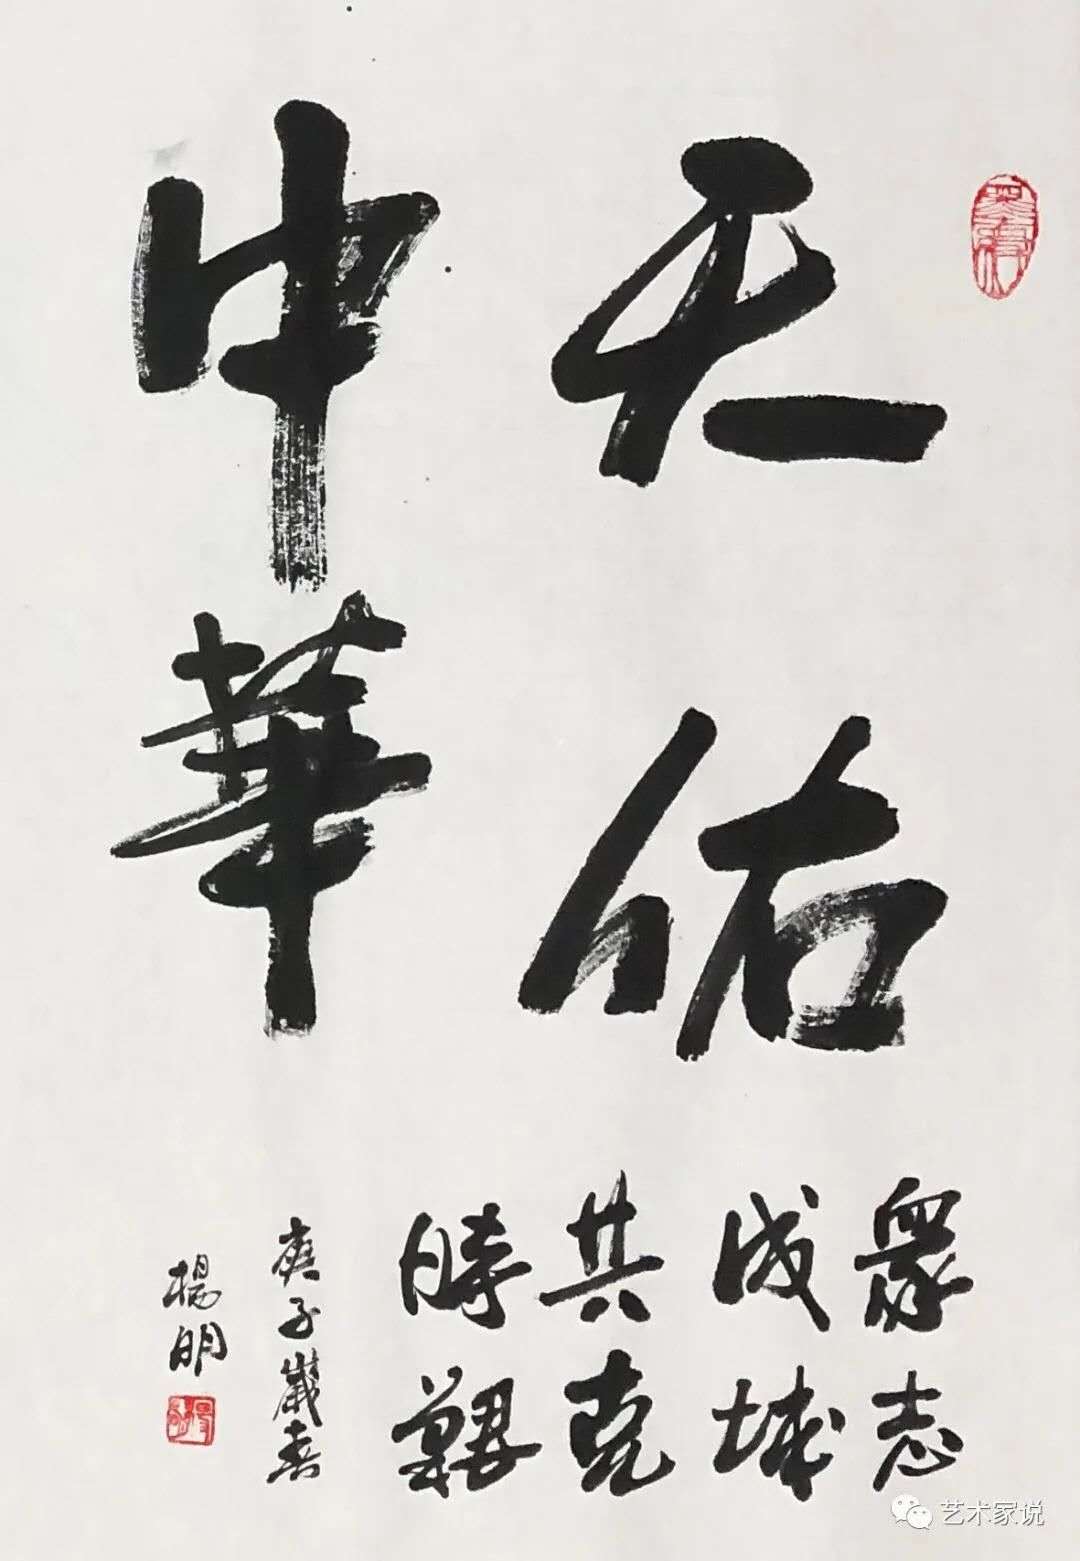 天佑
中華
衆志
成城
共克
時艱
庚子歲春
楊明
艺术家说